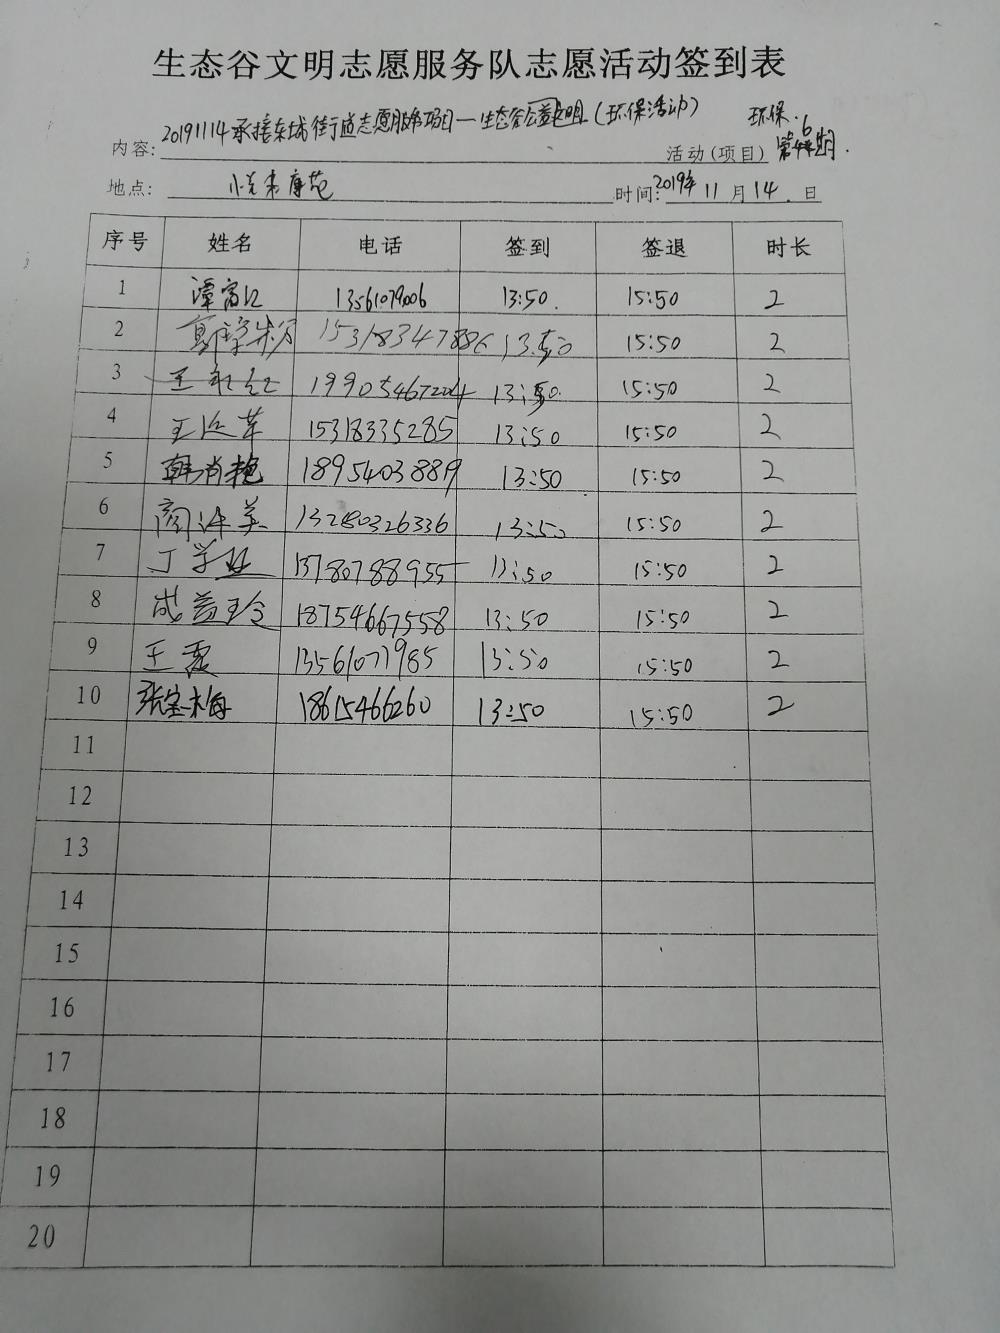 生态谷文明志愿服务队志愿活动签到表
内容: 20191114承接东城街道志愿服务项目—生态谷公益文明(环保活动) 活动(项目) 环保. 第6期.
地点: 康苑 时间: 2019年11月14.日
序号 姓名 电话 签到 签退 时长
1 谭富江 13561079006 13:50. 15:50 2
2 15318347886 13:50 15:50 2
3 王红红 19905467204 13:50. 15:50 2
4 王 苹 15318335285 13:50 15:50 2
5 韩肖艳 18954038819 13:50 15:50 2
6 英 13280326336 13:50 15:50 2
7 丁学 13780788955 13:50 15:50 2
8 成益玲 18754667558 13:50 15:50 2
9 王霞 13561071985 13:50 15:50 2
10 张宝梅 18615466260 13:50 15:50 2
11
12
13
14
15
16
17
18
19
20